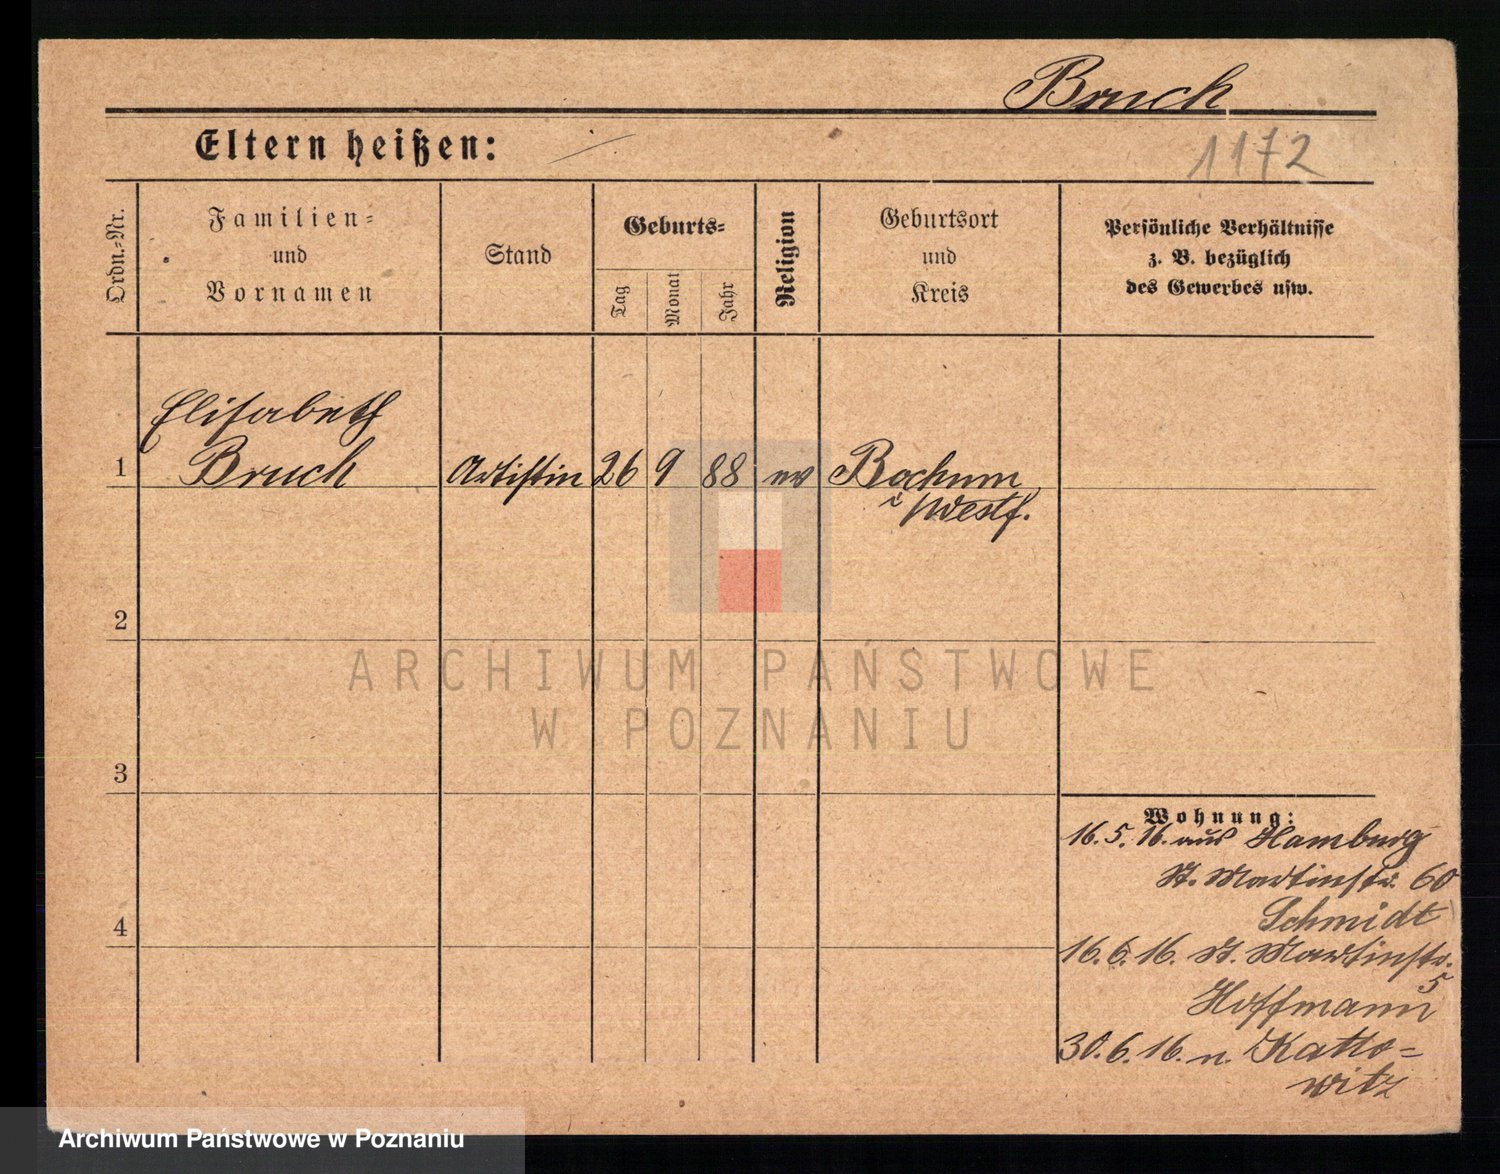 Bruch
Eltern heißen:
1172
Ordn.-Nr.
Familien-
und
Vornamen
Stand
Geburts-
Tag
Monat
Jahr
Religion
Geburtsort
und
Kreis
Persönliche Verhältnisse
z. B. bezüglich
des Gewerbes usw.
Elisabeth
1 Bruch Artistin 26 9 88 ev Bochum
i/Westf.
2
3
4
Wohnung:
16.5.16. aus Hamburg
St. Martinstr. 60
Schmidt
16.6.16. St. Martinstr.
5
Hoffmann
30.6.16. n. Katto-
witz
ARCHIWUM PAŃSTWOWE
W POZNANIU
Archiwum Państwowe w Poznaniu